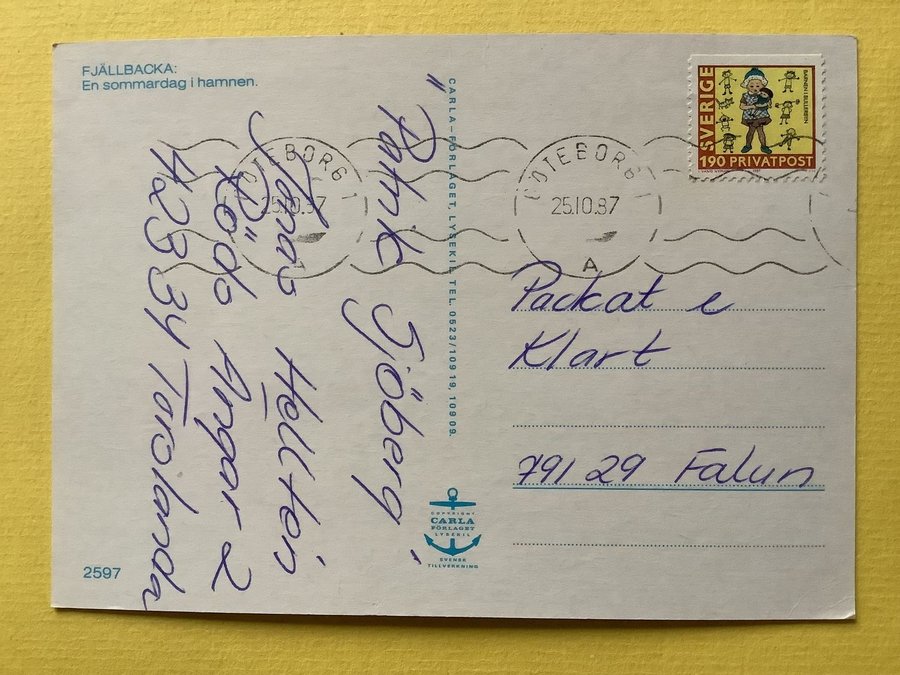 FJÄLLBACKA:
En sommardag i hamnen.
"Patrik Sjöberg"
Jonas Hellten
Röds Ängar 2
423 34 Torslanda
2597
CARLA-FÖRLAGET, LYSEKIL TEL. 0523/109 19, 109 09.
COPYRIGHT
CARLA
FÖRLAGET
LYSEKIL
SVENSK
TILLVERKNING
GÖTEBORG 1
25.10.87
A
GÖTEBORG 1
25.10.87
A
SVERIGE
BARNEN I BULLERBYN
190 PRIVATPOST
Packat e
Klart
791 29 Falun